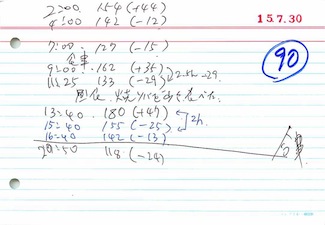 2:00 154 (+44)
4:00 142 (-12)
15.7.30
7:00 127 (-15)
食事
90
9:00 162 (+35)
11:25 133 (-29) 2.5h -29
13:40 180 (+47)
15:40 155 (-25) 2h
16:40 142 (-13)
20:50 118 (-24)
食事